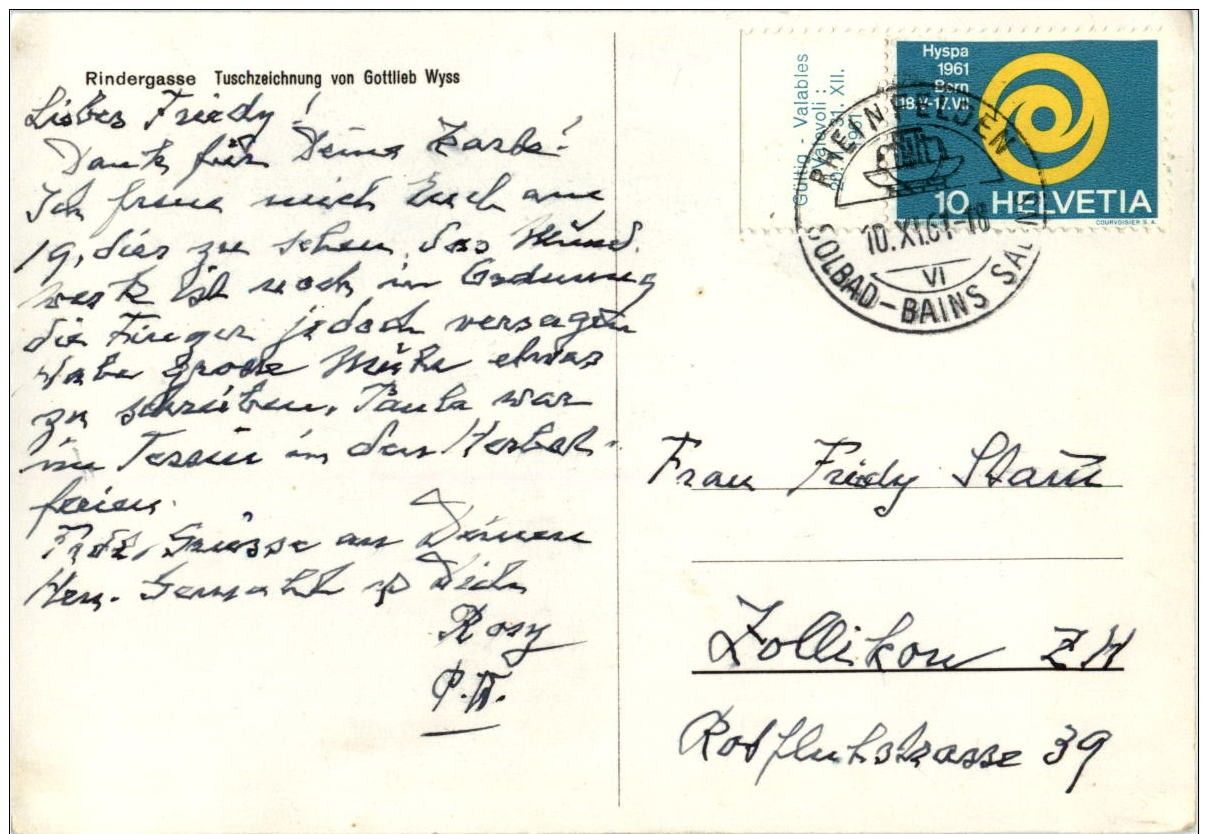 Rindergasse Tuschzeichnung von Gottlieb Wyss
Liebes Friedy!
Dank für Deine Karte!
Ich freue mich Euch am
19. dies zu sehen, das Mund
werk ist noch in Ordnung
die Finger jedoch versagen
habe grosse Mühe etwas
zu schreiben. Paula war
im Tessin in den Herbst-
ferien.
Grüsse an Deinen
Gemahl Dich
Rosy
Gültig Valables
Valevoli:
1961 31. XII.
Hyspa
1961
Bern
18.V-17.VII
10 HELVETIA
COURVOISIER S.A.
RHEINFELDEN
10.XI.61-18
VI
SOLBAD-BAINS SALINS
Frau Friedy Stam
Zollikon ZH
Rotfluhstrasse 39